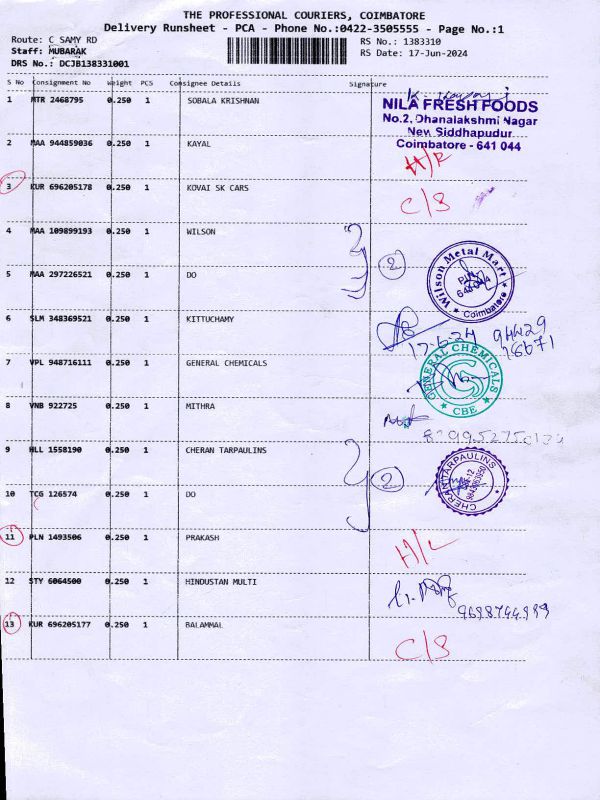 THE PROFESSIONAL COURIERS, COIMBATORE
Delivery Runsheet - PCA - Phone No.:0422-3505555 - Page No.:1
Route: C SAMY RD
RS No.: 1383310
Staff: MUBARAK
RS Date: 17-Jun-2024
DRS No.: DCJB138331001
S No Consignment No Weight PCS Consignee Details Signature
1 MTR 2468795 0.250 1 SOBALA KRISHNAN
NILA FRESH FOODS
No.2, Dhanalakshmi Nagar
New Siddhapudur
Coimbatore - 641 044
2 MAA 944859036 0.250 1 KAYAL
3 KUR 696205178 0.250 1 KOVAI SK CARS C/S
4 MAA 109899193 0.250 1 WILSON
2
Wilson Metal Mart
Coimbatore
5 MAA 297226521 0.250 1 DO
6 SLM 348369521 0.250 1 KITTUCHAMY
17-6-24
7 VPL 948716111 0.250 1 GENERAL CHEMICALS
GENERAL CHEMICALS
CBE
8 VNB 922725 0.250 1 MITHRA
9 HLL 1558190 0.250 1 CHERAN TARPAULINS
2
CHERAN TARPAULINS
10 TCG 126574 0.250 1 DO
11 PLN 1493506 0.250 1 PRAKASH H/L
12 STY 6064500 0.250 1 HINDUSTAN MULTI
13 KUR 696205177 0.250 1 BALAMMAL C/S